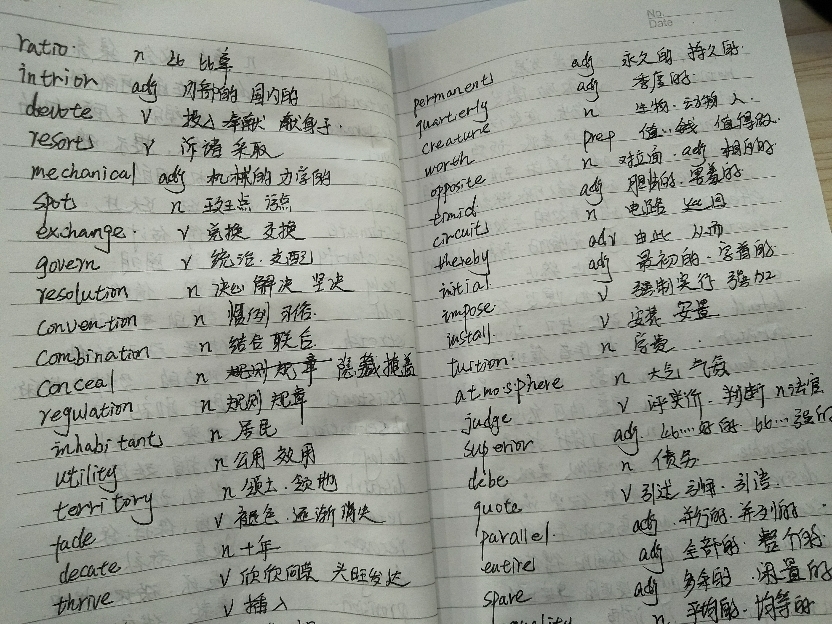 ratio. n 比 比率
intrior adj 内部的 国内的
devote v 投入 奉献 献身于.
resorts v 诉诸 采取
mechanical adj 机械的 力学的
spots n 斑点 污点
exchange. v 兑换 交换
govern v 统治. 支配
resolution n 决心 解决 坚决
convention n 惯例 习俗
combination n 结合 联合
conceal n 规则 规章 隐藏 掩盖
regulation n 规则 规章
inhabitants n 居民
utility n 公用 效用
territory n 领土. 领地
fade v 褪色. 逐渐消失
decate n 十年
thrive v 欣欣向荣 兴旺发达
v 插入
No.
Date
permanents adj 永久的 持久的.
quarterly adj 季度的
creature n 生物. 动物 人.
worth prep 值..钱 值得的.
opposite n 对立面. adj 相反的
timid adj 胆怯的. 害羞的
circuits n 电路
thereby adv 由此 从而
initial adj 最初的. 字首的
impose v 强制实行 强加
install v 安装 安置
tuition. n 学费
atmosphere n 大气 气氛
judge v 评价. 判断 n 法官
superior adj. 比...好的. 比...强的
debe n 债务
quote v 引述 引用. 引诸
parallel adj 并行的. 并列的.
entire adj 全部的. 整个的.
spare adj 多余的. 闲置的
n. 平均的. 均等的